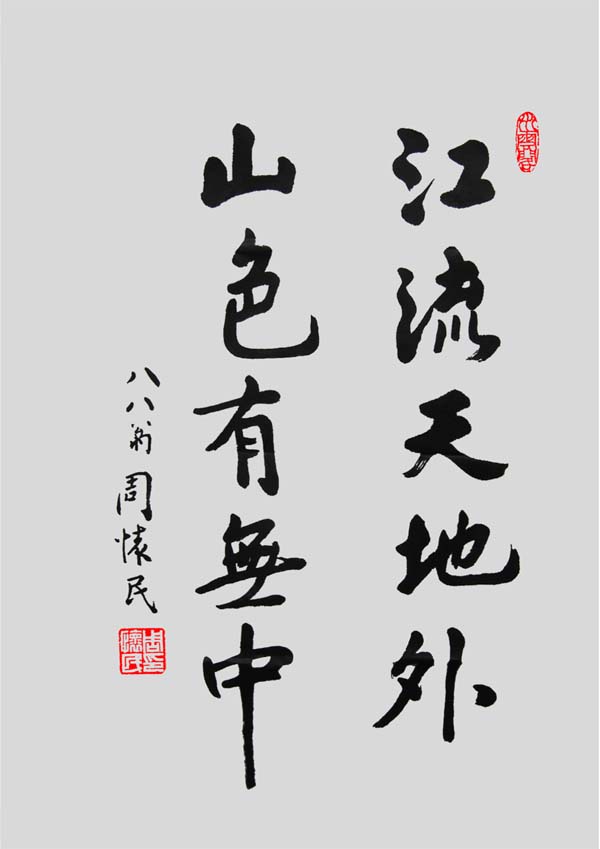 江流天地外
山色有無中
八八翁周懷民
周懷民印